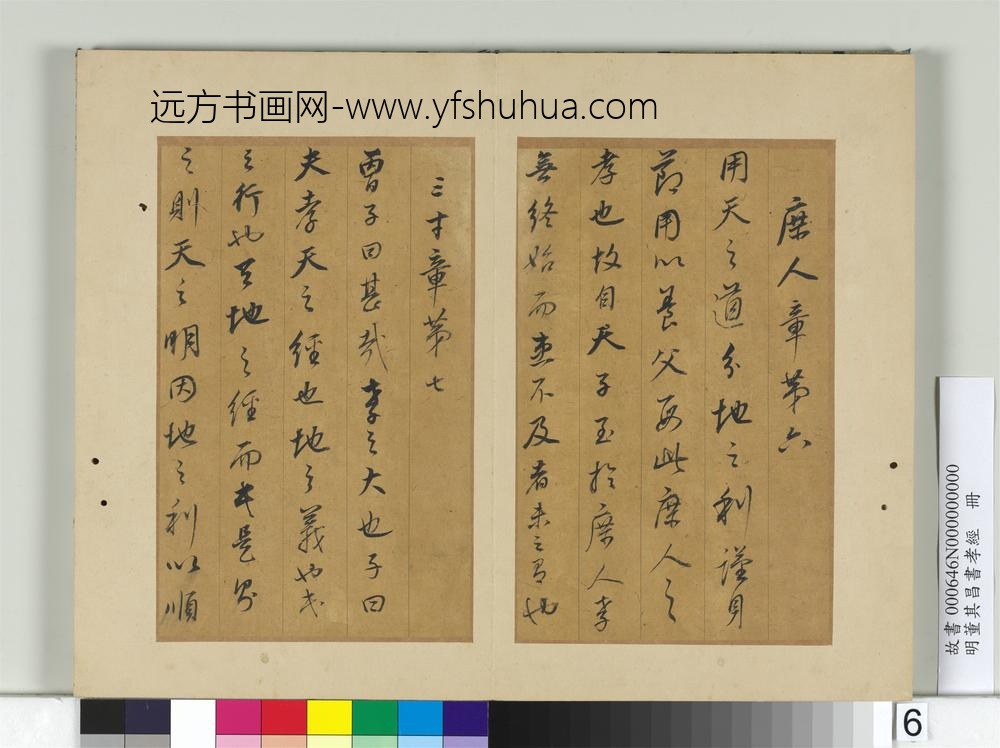 远方书画网-www.yfshuhua.com
庶人章第六
用天之道分地之利謹身
節用以養父母此庶人之
孝也故自天子至於庶人孝
無終始而患不及者未之有也
三才章第七
曾子曰甚哉孝之大也子曰
夫孝天之經也地之義也民
之行也天地之經而民是則
之則天之明因地之利以順
故書000646N000000000
明董其昌書孝經 冊
6